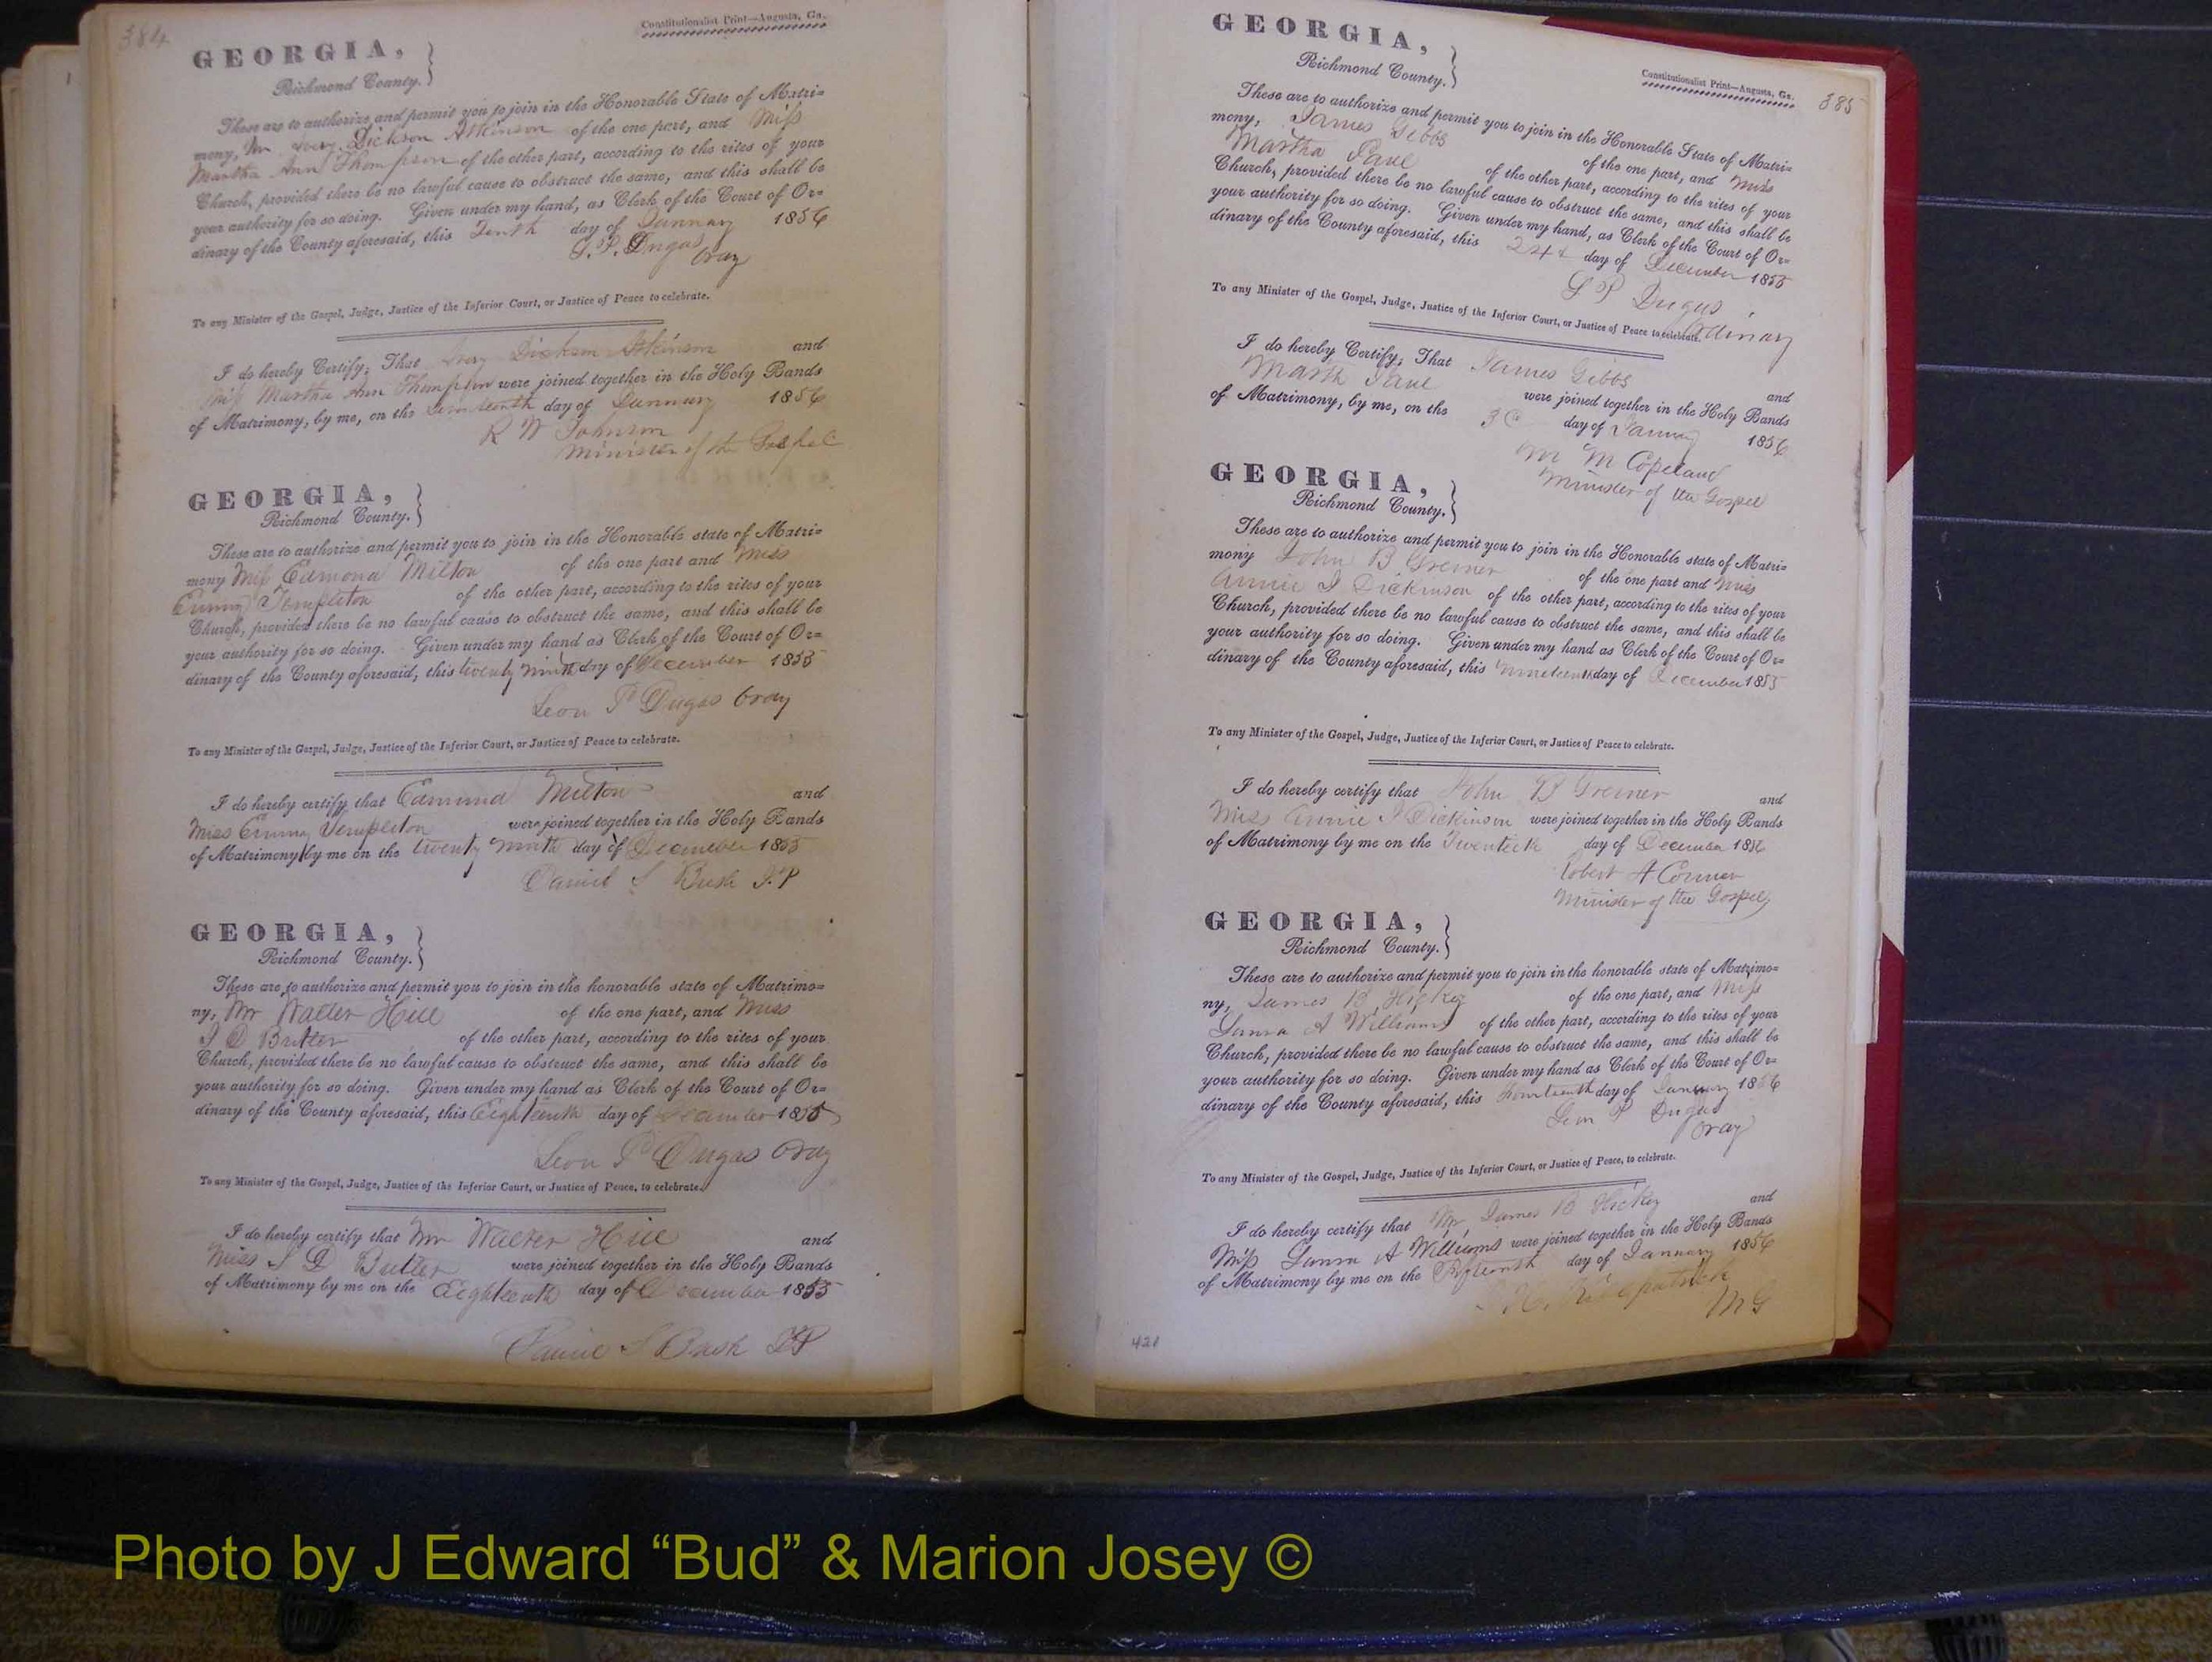 384
Constitutionalist Print—Augusta, Ga.
GEORGIA,
Richmond County.
These are to authorize and permit you to join in the Honorable State of Matri=
mony, Mr Dickson Atkinson of the one part, and Miss
Martha Ann Thompson of the other part, according to the rites of your
Church, provided there be no lawful cause to obstruct the same, and this shall be
your authority for so doing. Given under my hand, as Clerk of the Court of Or=
dinary of the County aforesaid, this Tenth day of January 1856
L. P. Dugas
Ordy
To any Minister of the Gospel, Judge, Justice of the Inferior Court, or Justice of Peace to celebrate.
I do hereby Certify, That Dickson Atkinson and
Miss Martha Ann Thompson were joined together in the Holy Bands
of Matrimony, by me, on the day of January 1856
R W Johnson
Minister of the Gospel
GEORGIA,
Richmond County.
These are to authorize and permit you to join in the Honorable state of Matri=
mony Edmond Milton of the one part and Miss
Emma Templeton of the other part, according to the rites of your
Church, provided there be no lawful cause to obstruct the same, and this shall be
your authority for so doing. Given under my hand as Clerk of the Court of Or=
dinary of the County aforesaid, this twenty ninth day of December 1855
Leon P Dugas Ordy
To any Minister of the Gospel, Judge, Justice of the Inferior Court, or Justice of Peace to celebrate.
I do hereby certify that Edmund Milton and
Miss Emma Templeton were joined together in the Holy Bands
of Matrimony by me on the twenty ninth day of December 1855
Daniel S Bush J.P
GEORGIA,
Richmond County.
These are to authorize and permit you to join in the honorable state of Matrimo=
ny, Mr Walter Hill of the one part, and Miss
S D Butler of the other part, according to the rites of your
Church, provided there be no lawful cause to obstruct the same, and this shall be
your authority for so doing. Given under my hand as Clerk of the Court of Or=
dinary of the County aforesaid, this Eighteenth day of December 1855
Leon P Dugas Ordy
To any Minister of the Gospel, Judge, Justice of the Inferior Court, or Justice of Peace, to celebrate.
I do hereby certify that Mr Walter Hill and
Miss S D Butler were joined together in the Holy Bands
of Matrimony by me on the Eighteenth day of December 1855
Daniel S Bush JP
GEORGIA,
Richmond County.
Constitutionalist Print—Augusta, Ga.
385
These are to authorize and permit you to join in the Honorable State of Matri=
mony, James Gibbs of the one part, and Miss
Martha Paul of the other part, according to the rites of your
Church, provided there be no lawful cause to obstruct the same, and this shall be
your authority for so doing. Given under my hand, as Clerk of the Court of Or=
dinary of the County aforesaid, this 24 day of December 1855
L P Dugas
Ordinary
To any Minister of the Gospel, Judge, Justice of the Inferior Court, or Justice of Peace to celebrate.
I do hereby Certify, That James Gibbs and
Marth Paul were joined together in the Holy Bands
of Matrimony, by me, on the day of 1856
M M Copeland
Minister of the Gospel
GEORGIA,
Richmond County.
These are to authorize and permit you to join in the Honorable state of Matri=
mony John B Greiner of the one part and Miss
Annie J Dickinson of the other part, according to the rites of your
Church, provided there be no lawful cause to obstruct the same, and this shall be
your authority for so doing. Given under my hand as Clerk of the Court of Or=
dinary of the County aforesaid, this nineteenth day of December 1855
To any Minister of the Gospel, Judge, Justice of the Inferior Court, or Justice of Peace to celebrate.
I do hereby certify that John B Greiner and
Miss Annie J Dickinson were joined together in the Holy Bands
of Matrimony by me on the Twentieth day of December
Robert A Conner
Minister of the Gospel
GEORGIA,
Richmond County.
These are to authorize and permit you to join in the honorable state of Matrimo=
ny, James B Hickey of the one part, and Miss
Laura A Williams of the other part, according to the rites of your
Church, provided there be no lawful cause to obstruct the same, and this shall be
your authority for so doing. Given under my hand as Clerk of the Court of Or=
dinary of the County aforesaid, this fourteenth day of January 1856
Leon P Dugas
Ordy
To any Minister of the Gospel, Judge, Justice of the Inferior Court, or Justice of Peace, to celebrate.
I do hereby certify that Mr James B Hickey and
Miss Laura A Williams were joined together in the Holy Bands
of Matrimony by me on the Fifteenth day of January 1856
Kilpatrick
MG
421
Photo by J Edward “Bud” & Marion Josey ©